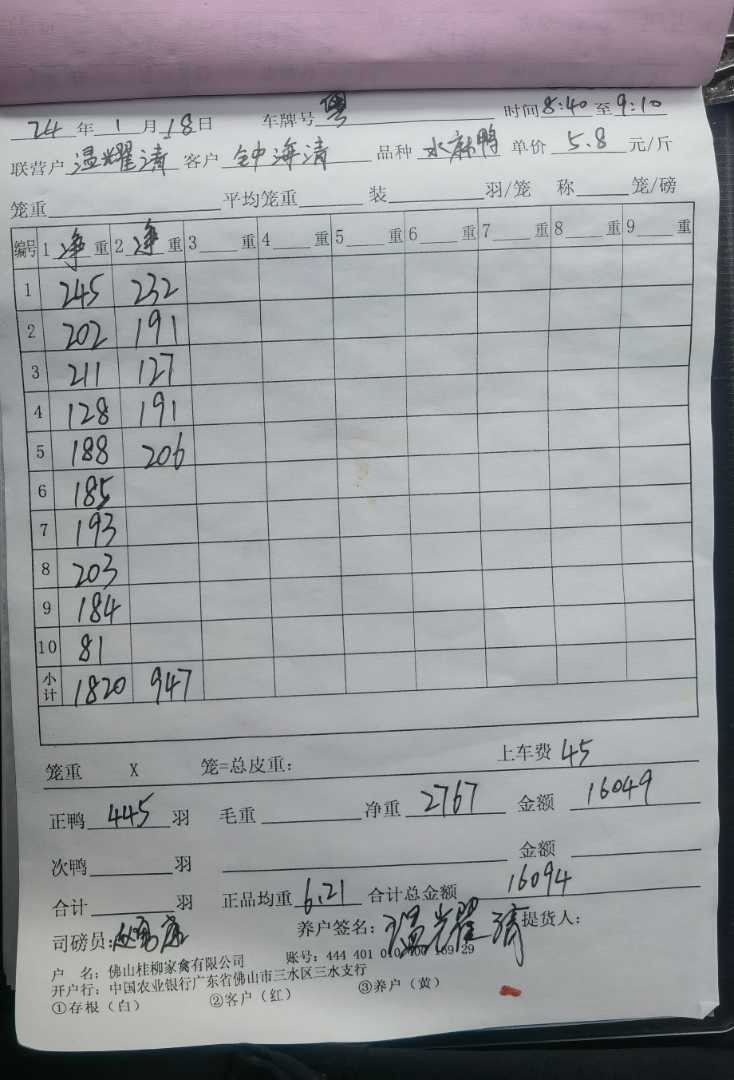 24年1月18日 车牌号粤 时间8:40至9:10
联营户温耀清 客户钟海清 品种水麻鸭 单价5.8元/斤
笼重 平均笼重 装 羽/笼 称 笼/磅
编号 1净重 2净重 3 重 4 重 5 重 6 重 7 重 8 重 9 重
1 245 232
2 202 191
3 211 127
4 128 191
5 188 206
6 185
7 193
8 203
9 184
10 81
小计 1820 947
笼重 X 笼=总皮重: 上车费45
正鸭445羽 毛重 净重2767 金额16049
次鸭 羽 金额
合计 羽 正品均重6.21 合计总金额16094
司磅员: 养户签名:温耀清 提货人:
户 名:佛山桂柳家禽有限公司 账号:444 401 010 29
开户行:中国农业银行广东省佛山市三水区三水支行
①存根(白) ②客户(红) ③养户(黄)